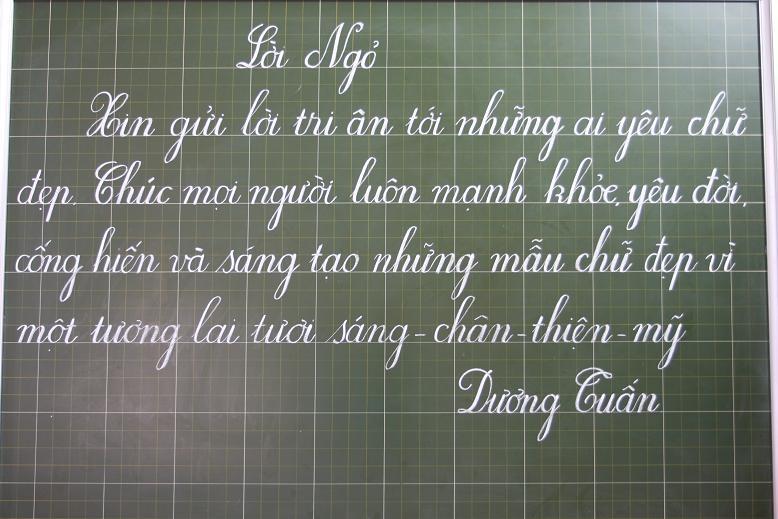 Lời Ngỏ
Xin gửi lời tri ân tới những ai yêu chữ
đẹp. Chúc mọi người luôn mạnh khỏe, yêu đời,
cống hiến và sáng tạo những mẫu chữ đẹp vì
một tương lai tươi sáng - chân - thiện - mỹ
Dương Tuấn